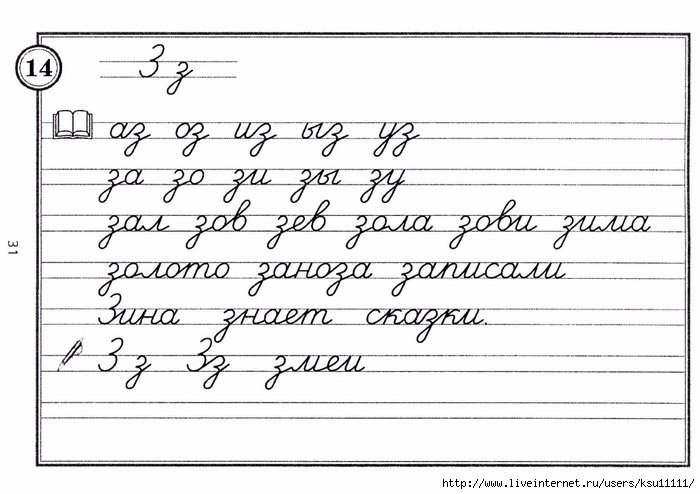 14
З з
аз оз из ыз уз
за зо зи зы зу
зал зов зев зола зови зима
золото заноза записали
Зина знает сказки.
З з Зз змеи
31
http://www.liveinternet.ru/users/ksu11111/